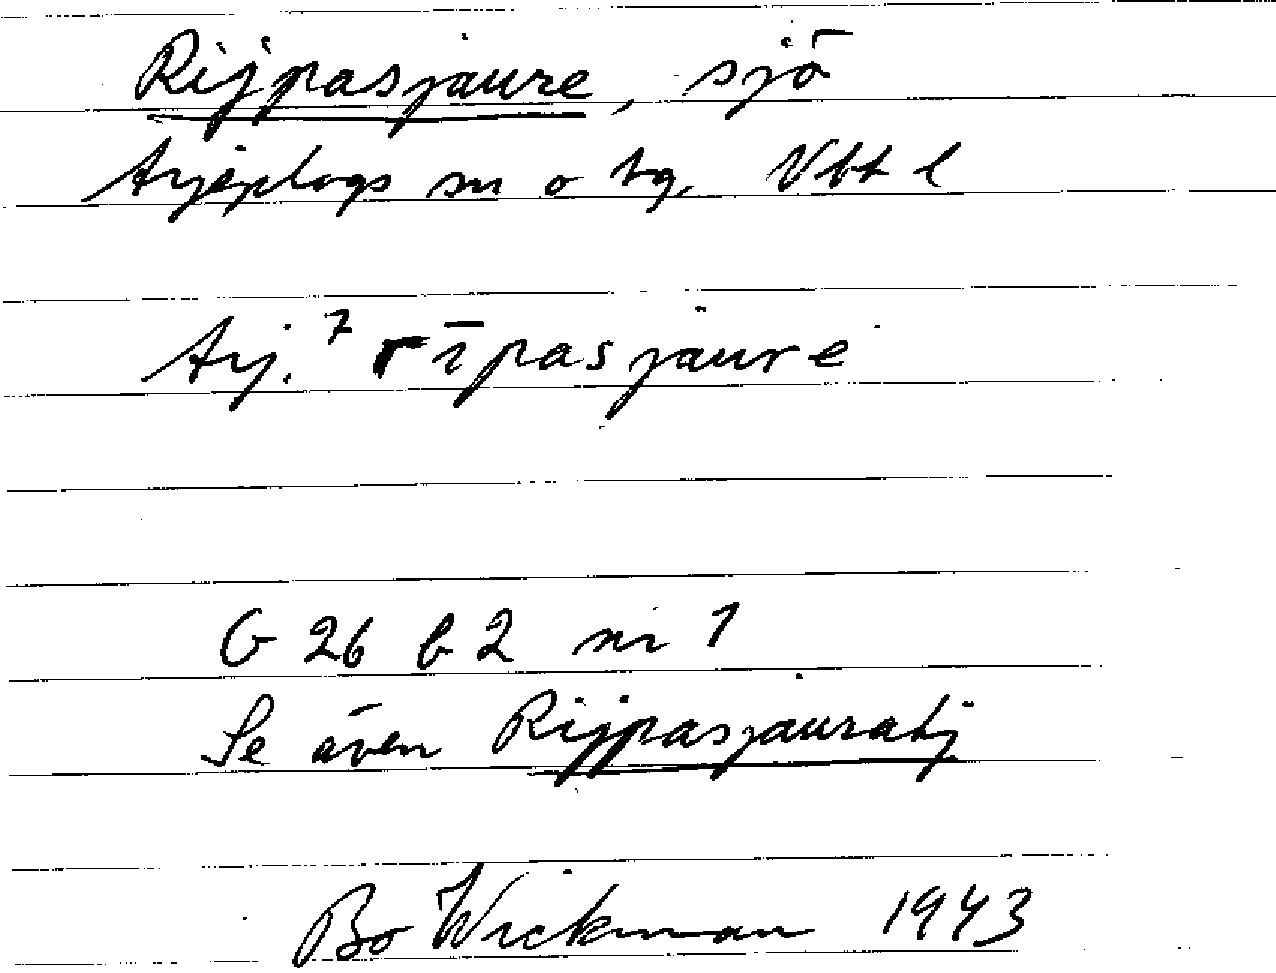 Rijpasjaure, sjö
Arjeplogs sn o tg. Vbt l
Arj. 7 rīpasjaure
G 26 b 2 nr 1
Se även Rijpasjauratj
Bo Wickman 1943